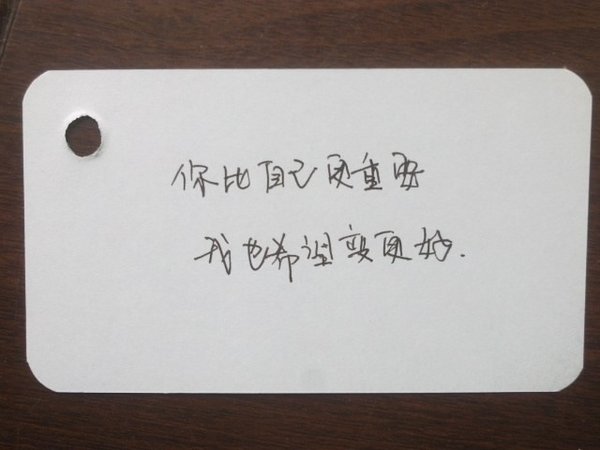 你比自己更重要
我也希望变更好.